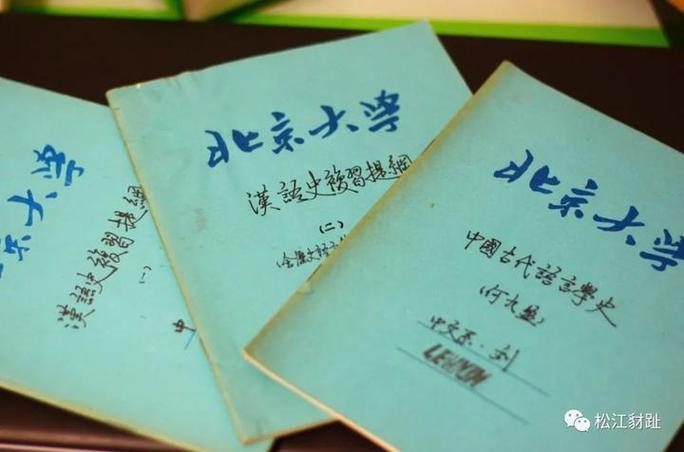 京大学
漢語史複習提綱
(一)
北京大学
漢語史複習提綱
(二)
北京大学
中國古代語言學史
(何九盈)
中文系·刘
松江豺趾